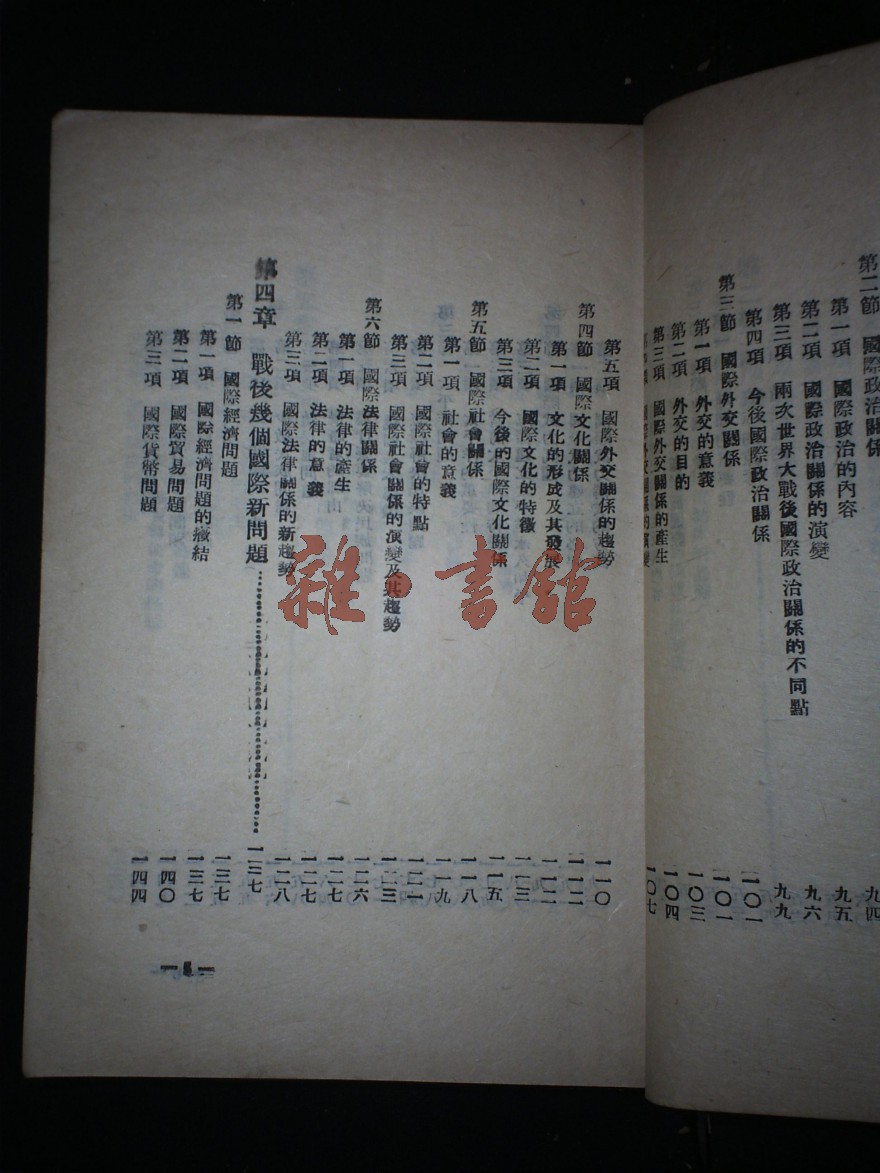 第二節 國際政治關係 九四
第一項 國際政治的內容 九五
第二項 國際政治關係的演變 九六
第三項 兩次世界大戰後國際政治關係的不同點 九九
第四項 今後國際政治關係 一〇一
第三節 國際外交關係 一〇一
第一項 外交的意義 一〇三
第二項 外交的目的 一〇四
第三項 國際外交關係的產生 一〇七
第五項 國際外交關係的趨勢 一一〇
第四節 國際文化關係 一一二
第一項 文化的形成及其發展 一一二
第二項 國際文化的特徵 一一三
第三項 今後的國際文化關係 一一五
第五節 國際社會關係 一一八
第一項 社會的意義 一一九
第二項 國際社會的特點 一二一
第三項 國際社會關係的演變及其趨勢 一二三
第六節 國際法律關係 一二六
第一項 法律的產生 一二七
第二項 法律的意義 一二七
第三項 國際法律關係的新趨勢 一二八
第四章 戰後幾個國際新問題 一三七
第一節 國際經濟問題 一三七
第一項 國際經濟問題的癥結 一三七
第二項 國際貿易問題 一四〇
第三項 國際貨幣問題 一四四
雜·書館